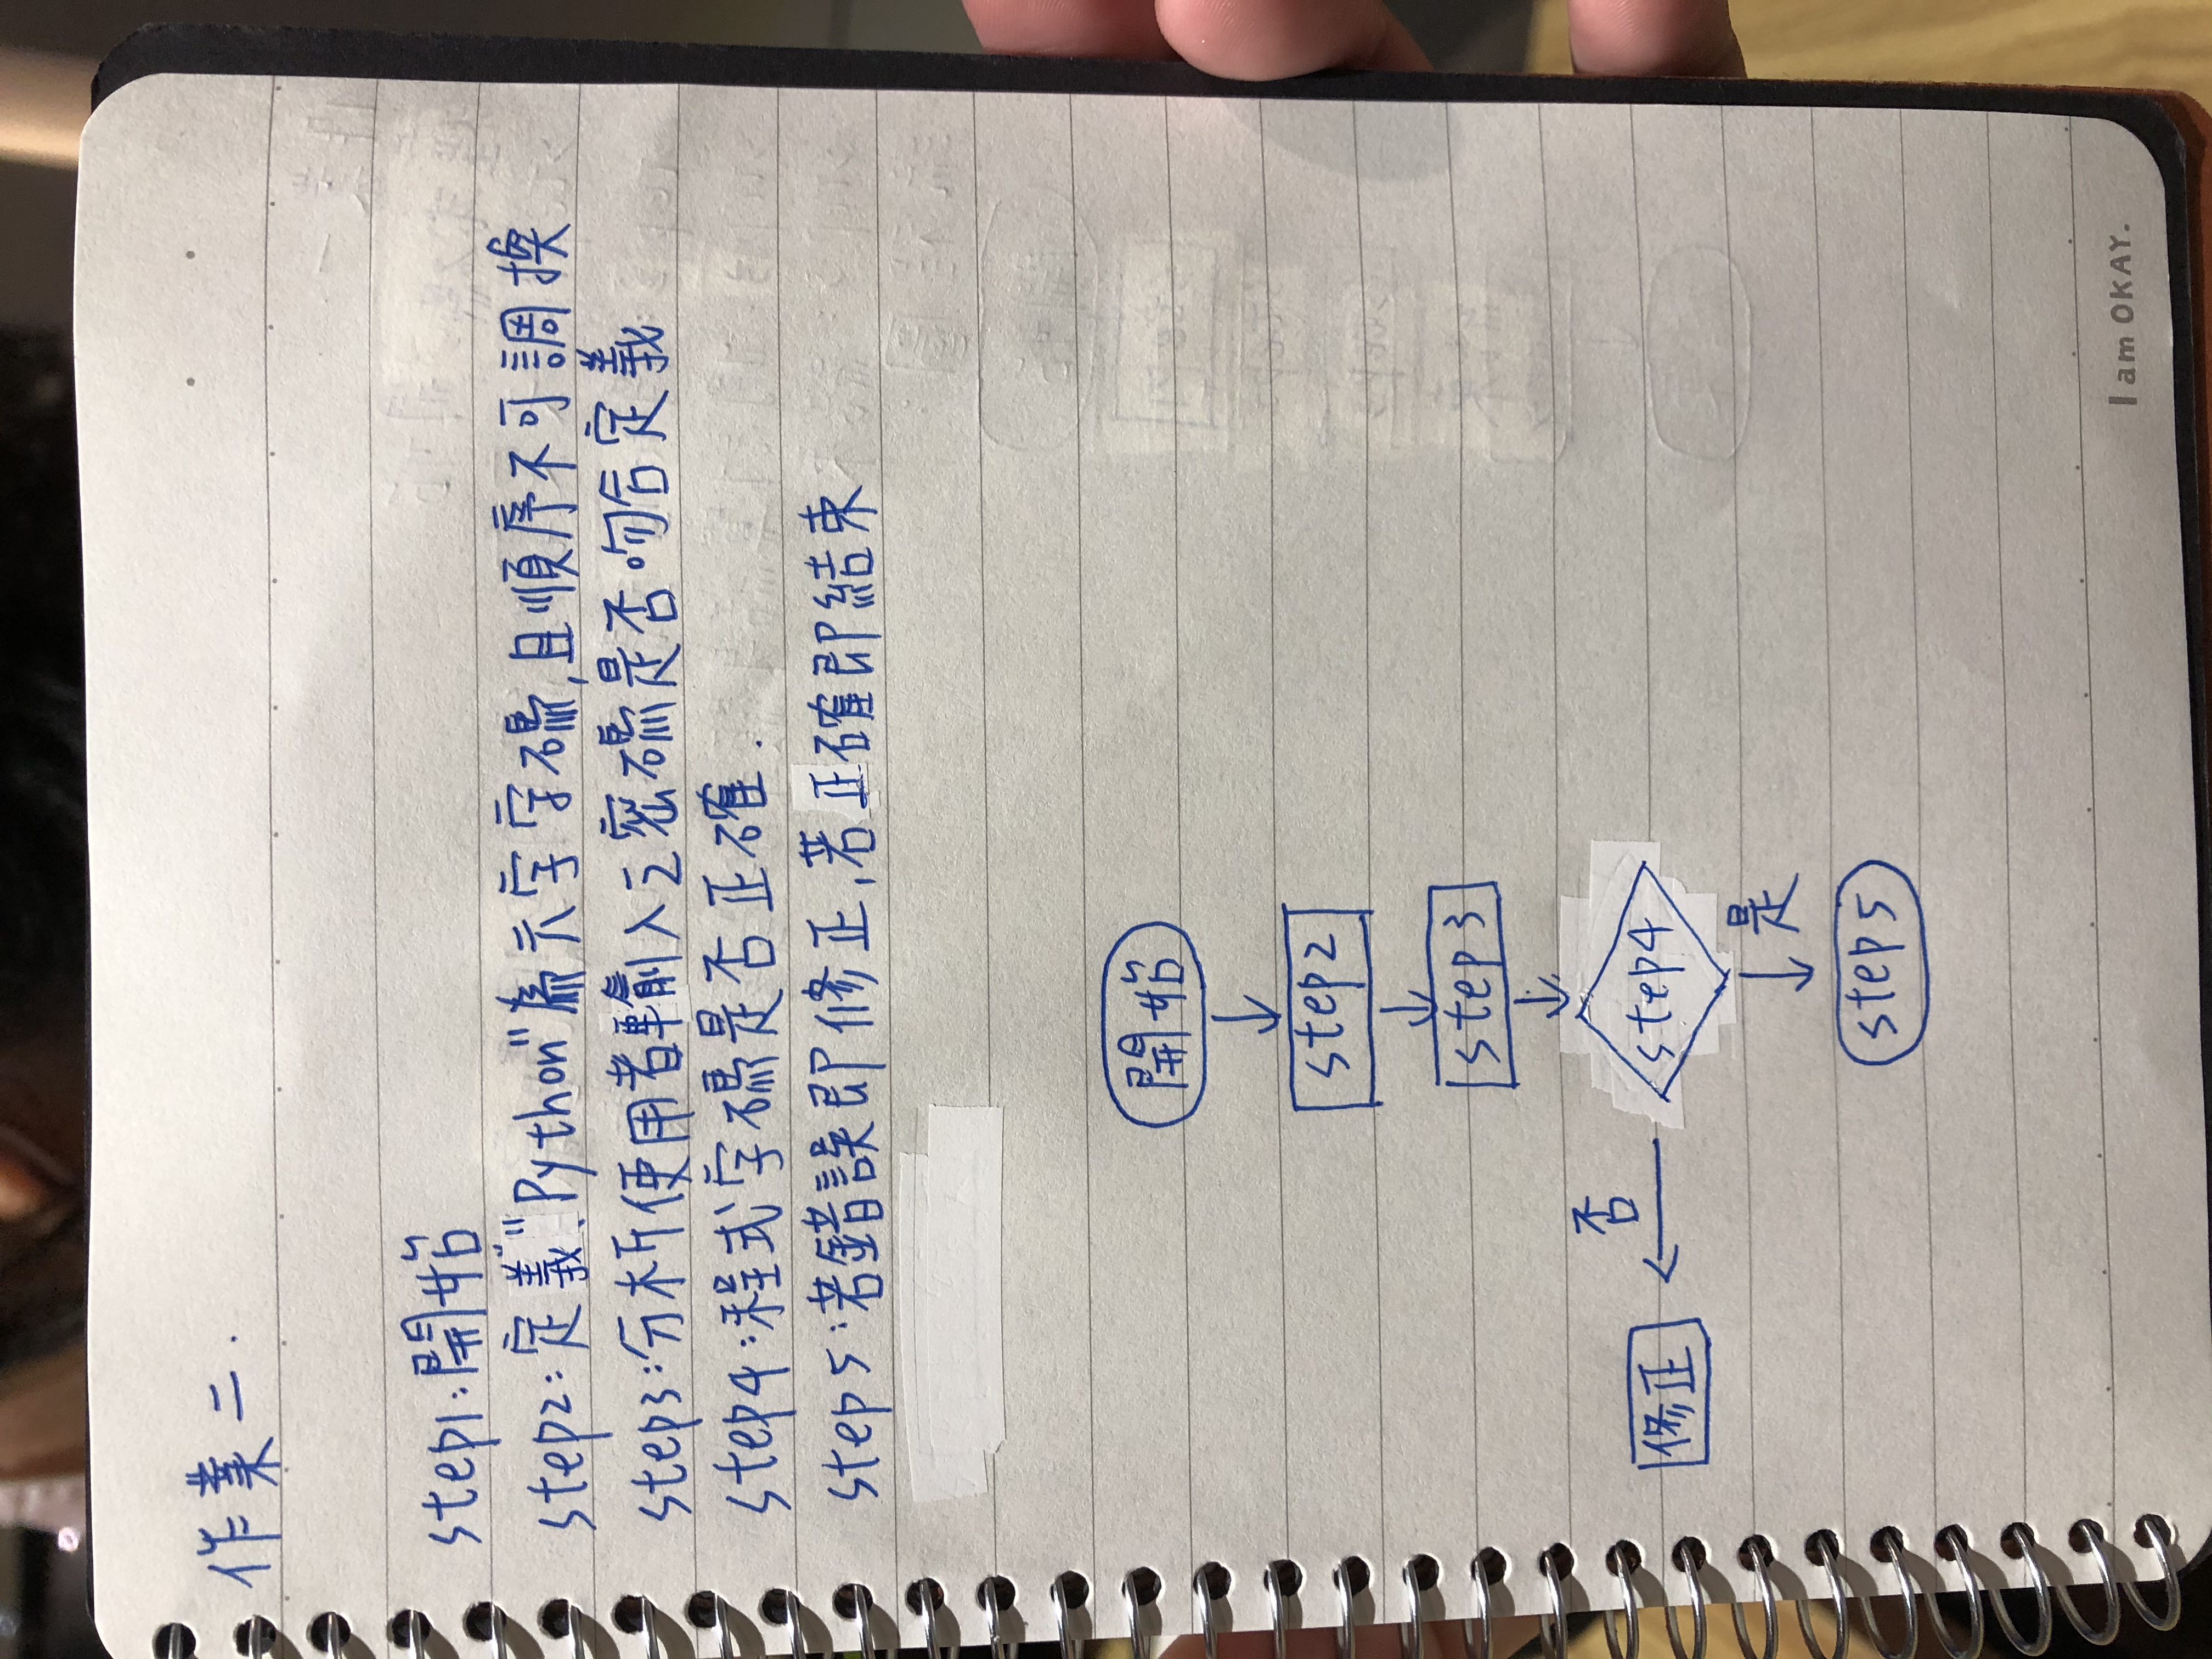 作業二.
step1:開始
step2:定義"Python"為六字字碼,且順序不可調換
step3:分析使用者輸入之密碼是否吻合定義
step4:程式字碼是否正確.
step5:若錯誤即修正,若正確即結束
開始
step2
step3
否
修正
step4
是
step5
I am OKAY.